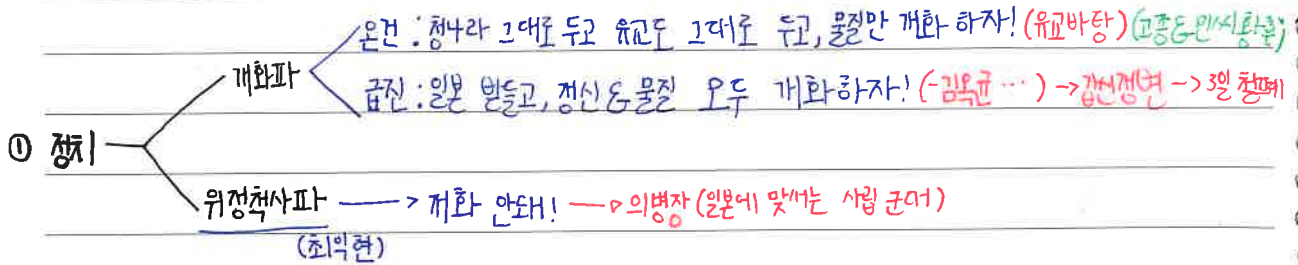 온건 : 청나라 그대로 두고 유교도 그대로 두고, 물질만 개화 하자! (유교바탕) (고종&민씨황후)
개화파
급진 : 일본 받들고, 정신 & 물질 모두 개화하자! (-김옥균 …) → 갑신정변 -> 3일 천하
① 정치
위정척사파 → 개화 안돼! → 의병장 (일본에 맞서는 사립 군대)
(최익현)